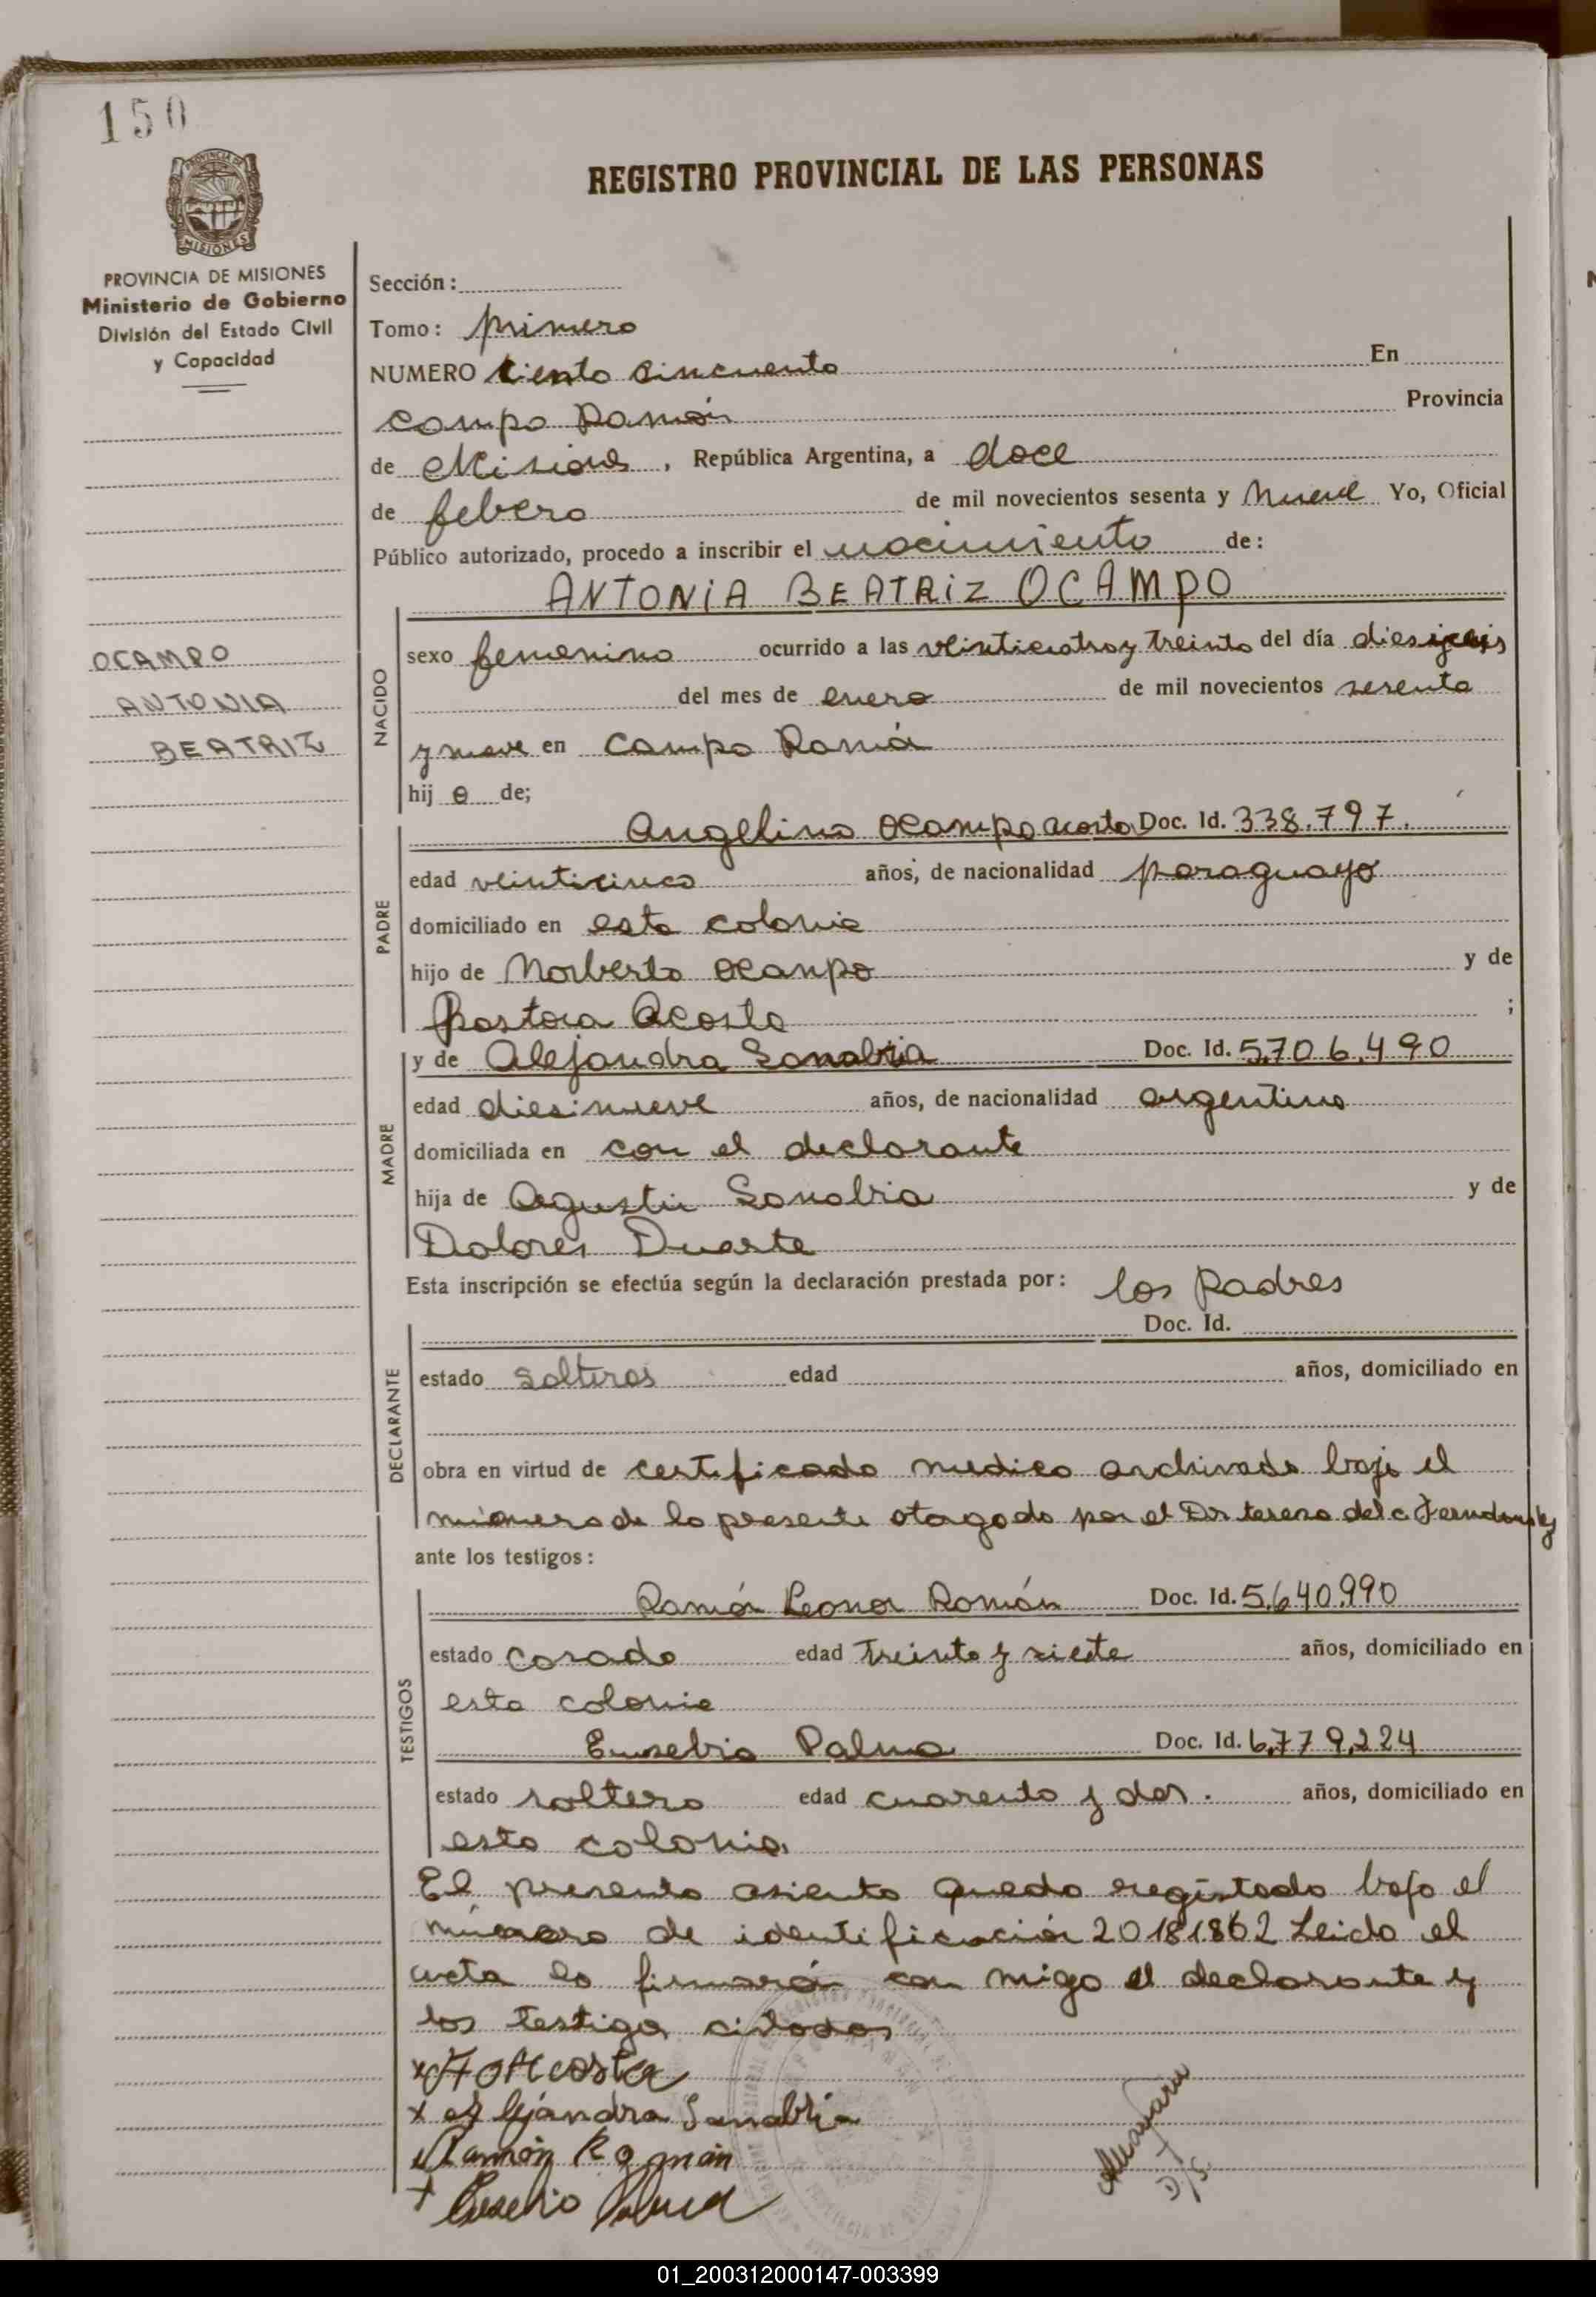 150
PROVINCIA DE
MISIONES
REGISTRO PROVINCIAL DE LAS PERSONAS
PROVINCIA DE MISIONES
Ministerio de Gobierno
División del Estado Civil
y Capacidad
OCAMPO
ANTONIA
BEATRIZ
Sección:
Tomo: primero
NUMERO ciento cincuenta En
campo Ramón Provincia
de Misiones, República Argentina, a doce
de febero de mil novecientos sesenta y nueve Yo, Oficial
Público autorizado, procedo a inscribir el nacimiento de:
ANTONIA BEATRIZ OCAMPO
NACIDO
sexo femenino ocurrido a las y treinta del día
del mes de enero de mil novecientos sesenta
y nueve en campo Ramón
hij a de;
PADRE
Angelino Ocampo acosta Doc. Id. 338.797.
edad veinticinco años, de nacionalidad paraguayo
domiciliado en esta colonia
hijo de Norberto Ocampo y de
Pastora Acosta ;
MADRE
y de Alejandra Sanabria Doc. Id. 5.706.490
edad diesinueve años, de nacionalidad argentina
domiciliada en con el declarante
hija de Agustin Sanabria y de
Dolores Duarte
Esta inscripción se efectúa según la declaración prestada por: los Padres
DECLARANTE
Doc. Id.
estado Solteros edad años, domiciliado en
obra en virtud de certificado medico archivado bajo el
número de la presente otorgado por el Dr teresa del c.
ante los testigos:
TESTIGOS
Ramón Leonor Román Doc. Id. 5.640.990
estado casado edad Treinta y siete años, domiciliado en
esta colonia
Eusebio Palma Doc. Id. 6.779.224
estado soltero edad cuarenta y dos. años, domiciliado en
esta colonia
El presente asiento queda registado bajo el
número de identificación 20181862 Leida el
acta la firmarán con migo el declarante y
los testigos citados
Acosta
x Alejandra Sanabria
Ramón Román
x Eusebio Palma
D/S.
01_200312000147-003399